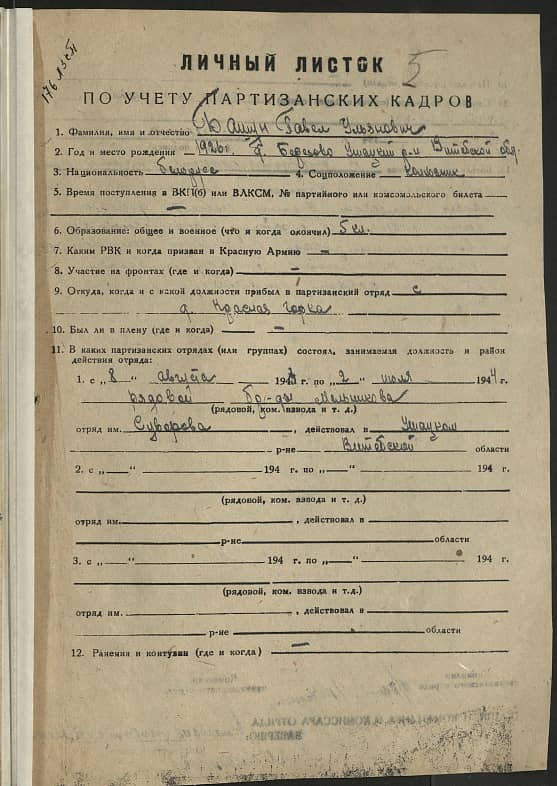 ЛИЧНЫЙ ЛИСТОК 5
ПО УЧЕТУ ПАРТИЗАНСКИХ КАДРОВ
1. Фамилия, имя и отчество Павел Ульянович
2. Год и место рождения 1926 г. Ушацкий р-н Витебской обл.
3. Национальность белорус 4. Соцположение колхозник
5. Время поступления в ВКП(б) или ВЛКСМ, № партийного или комсомольского билета
—
6. Образование: общее и военное (что и когда окончил) 5 кл.
7. Каким РВК и когда призван в Красную Армию —
8. Участие на фронтах (где и когда) —
9. Откуда, когда и с какой должности прибыл в партизанский отряд с
д. Красная горка
10. Был ли в плену (где и когда) —
11. В каких партизанских отрядах (или группах) состоял, занимаемая должность и район
действия отряда:
1. с „8“ августа 1943 г. по „2“ июля 1944 г.
рядовой бр-ды Мельникова
(рядовой, ком. взвода и т. д.)
отряд им. Суворова, действовал в Ушацком
р-не Витебской области
2. с „—“ 194 г. по „—“ 194 г.
(рядовой, ком. взвода и т. д.)
отряд им. , действовал в
р-не области
3. с „—“ 194 г. по „—“ 194 г.
(рядовой, ком. взвода и т.д.)
отряд им. , действовал в
р-не области
12. Ранения и контузии (где и когда) —